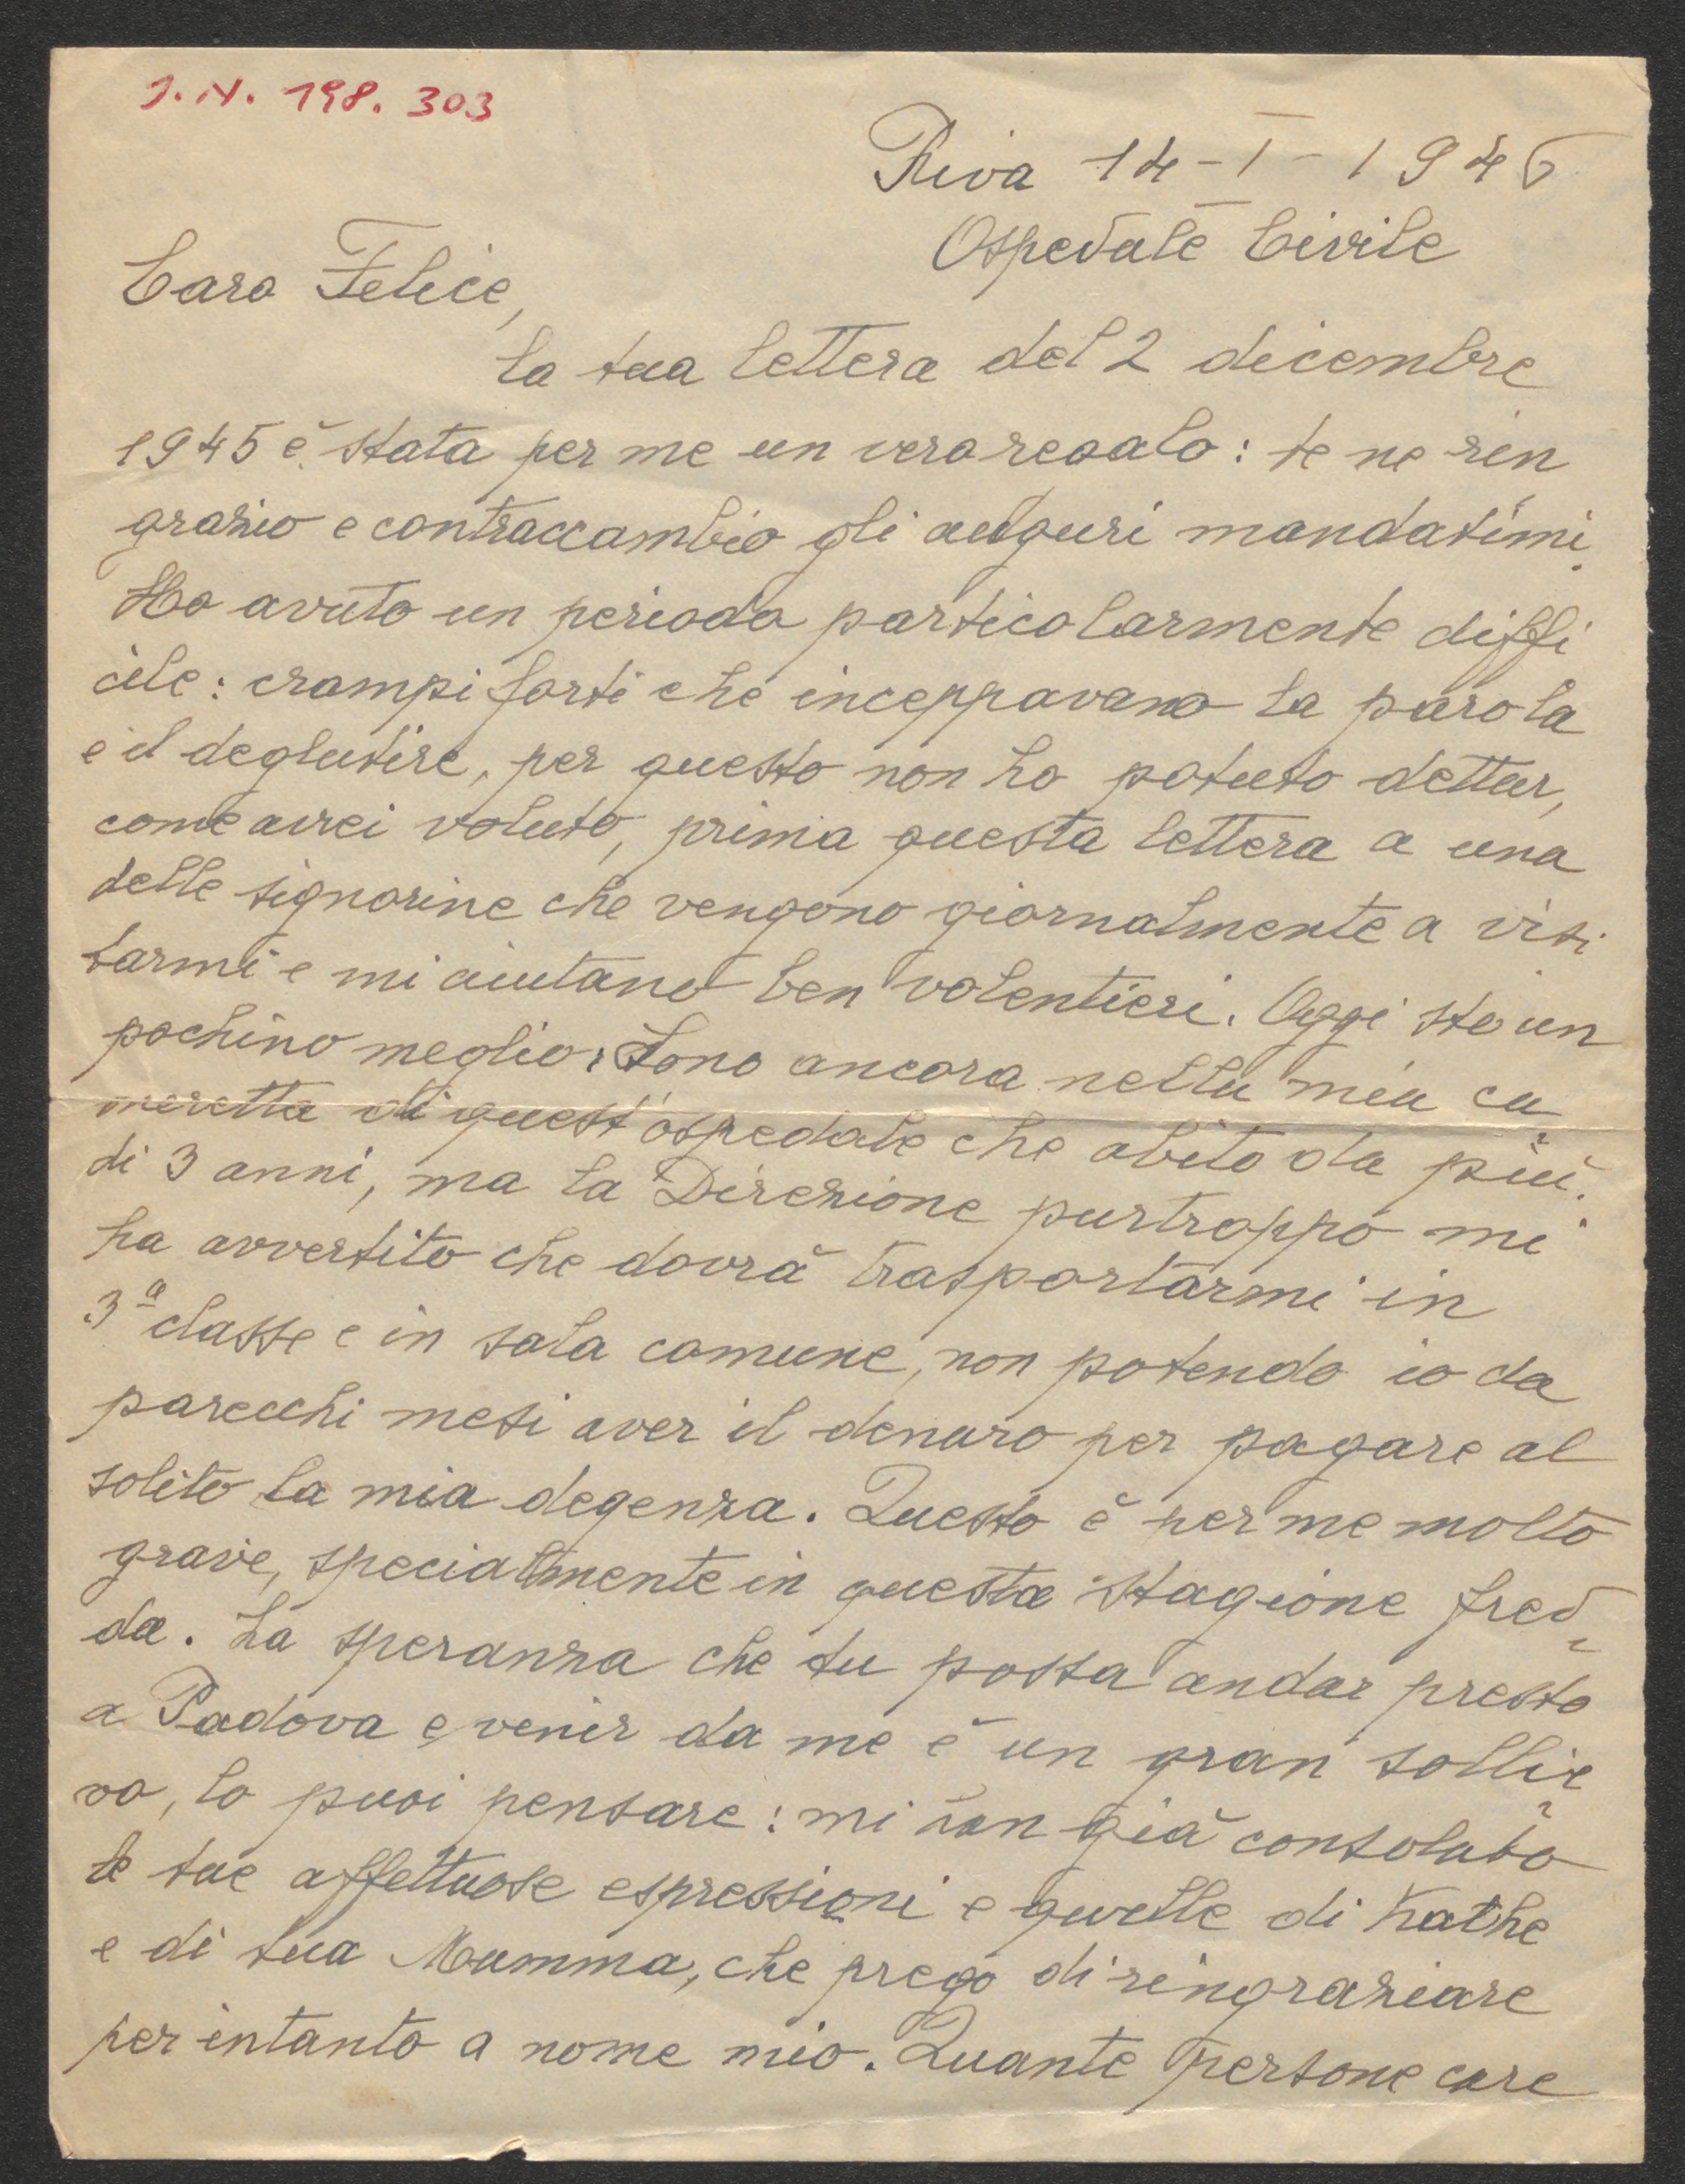 J.N. 198.303
Riva 14-I-1946
Ospedale Civile
Caro Felice,
la tua lettera del 2 dicembre
1945 è stata per me un vero regalo: te ne rin
grazio e contraccambio gli auguri mandatimi.
Ho avuto un periodo particolarmente diffi
cile: crampi forti che inceppavano la parola
e il deglutire, per questo non ho potuto dettar,
come avrei voluto, prima questa lettera a una
delle signorine che vengono giornalmente a visi
tarmi e mi aiutano ben volentieri. Oggi sto un
pochino meglio. Sono ancora nella mia ca-
meretta di quest'ospedale che abito da più
di 3 anni, ma la Direzione purtroppo mi
ha avvertito che dovrà trasportarmi in
3ª classe e in sala comune, non potendo io da
parecchi mesi aver il denaro per pagare al
solito la mia degenza. Questo è per me molto
grave, specialmente in questa stagione fred-
da. La speranza che tu possa andar presto
a Padova e venir da me è un gran sollie-
vo, lo puoi pensare: mi han già consolato
le tue affettuose espressioni e quelle di Kathe
e di tua Mamma, che prego di ringraziare
per intanto a nome mio. Quante persone care